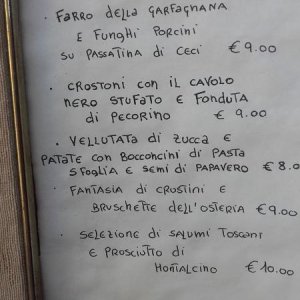 · FARRO DELLA GARFAGNANA
E FUNGHI PORCINI
SU PASSATINA DI CECI €9.00
· CROSTONI CON IL CAVOLO
NERO STUFATO E FONDUTA
DI PECORINO € 9.00
· VELLUTATA DI ZUCCA E
PATATE CON BOCCONCINI DI PASTA
SFOGLIA E SEMI DI PAPAVERO €8.0
· FANTASIA DI CROSTINI E
BRUSCHETTE DELL'OSTERIA €9.00
· SELEZIONE DI SALUMI TOSCANI
E PROSCIUTTO DI
MONTALCINO €10.00